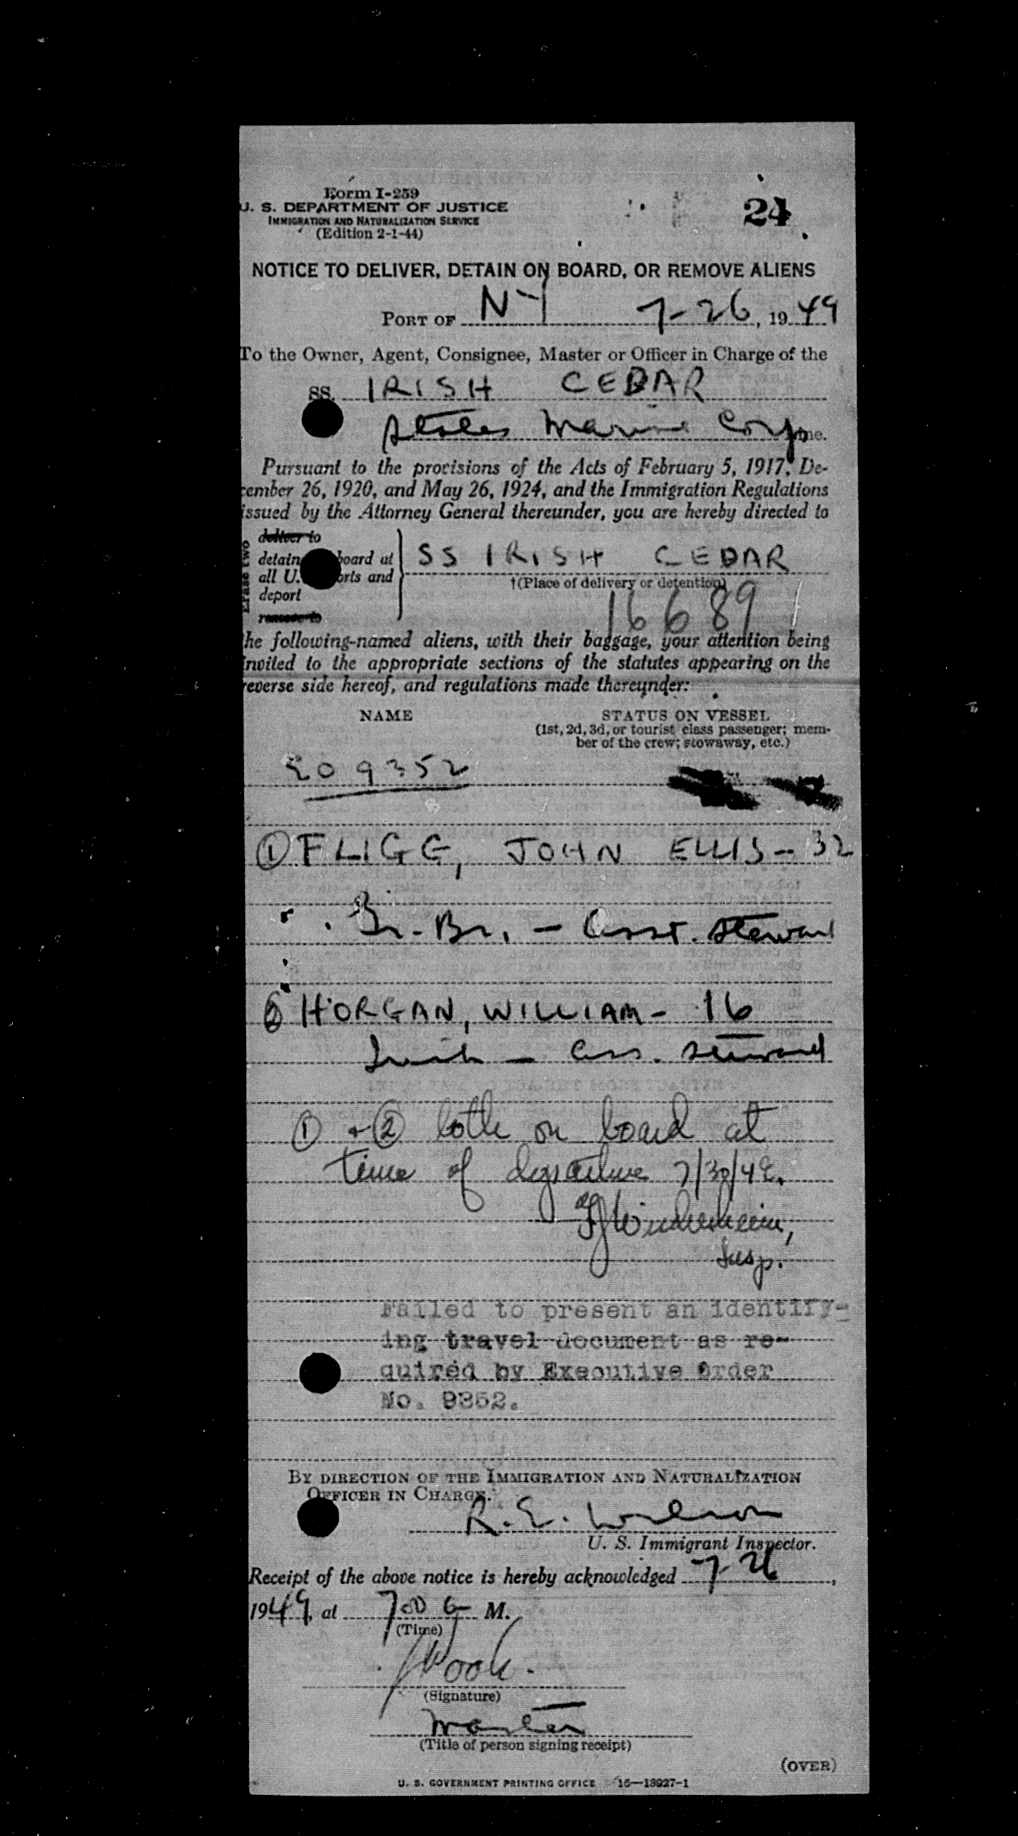 Form I-259
U. S. DEPARTMENT OF JUSTICE
IMMIGRATION AND NATURALIZATION SERVICE
(Edition 2-1-44)
24
NOTICE TO DELIVER, DETAIN ON BOARD, OR REMOVE ALIENS
PORT OF NY 7-26, 1949
To the Owner, Agent, Consignee, Master or Officer in Charge of the
SS. IRISH CEDAR
States Marine Corp
Pursuant to the provisions of the Acts of February 5, 1917, De-
cember 26, 1920, and May 26, 1924, and the Immigration Regulations
issued by the Attorney General thereunder, you are hereby directed to
Erase two
deliver to
detain board at
all U. orts and
deport
remove to
SS IRISH CEDAR
†(Place of delivery or detention)
16689
he following-named aliens, with their baggage, your attention being
invited to the appropriate sections of the statutes appearing on the
reverse side hereof, and regulations made thereunder:
NAME
STATUS ON VESSEL
(1st, 2d, 3d, or tourist class passenger; mem-
ber of the crew; stowaway, etc.)
209352
① FLIGG, JOHN ELLIS - 32
Gr. Br. - Asst. Steward
② HORGAN, WILLIAM - 16
Irish - Ass. Steward
① + ② both on board at
time of departure 7/30/49.
Insp.
Failed to present an identify-
ing travel document as re-
quired by Executive Order
No. 9352.
BY DIRECTION OF THE IMMIGRATION AND NATURALIZATION
OFFICER IN CHARGE.
R. E. Wilson
U. S. Immigrant Inspector.
Receipt of the above notice is hereby acknowledged 7-26,
1949, at 7 00 M.
(Time)
(Signature)
Master
(Title of person signing receipt)
(OVER)
U. S. GOVERNMENT PRINTING OFFICE 16—13927-1